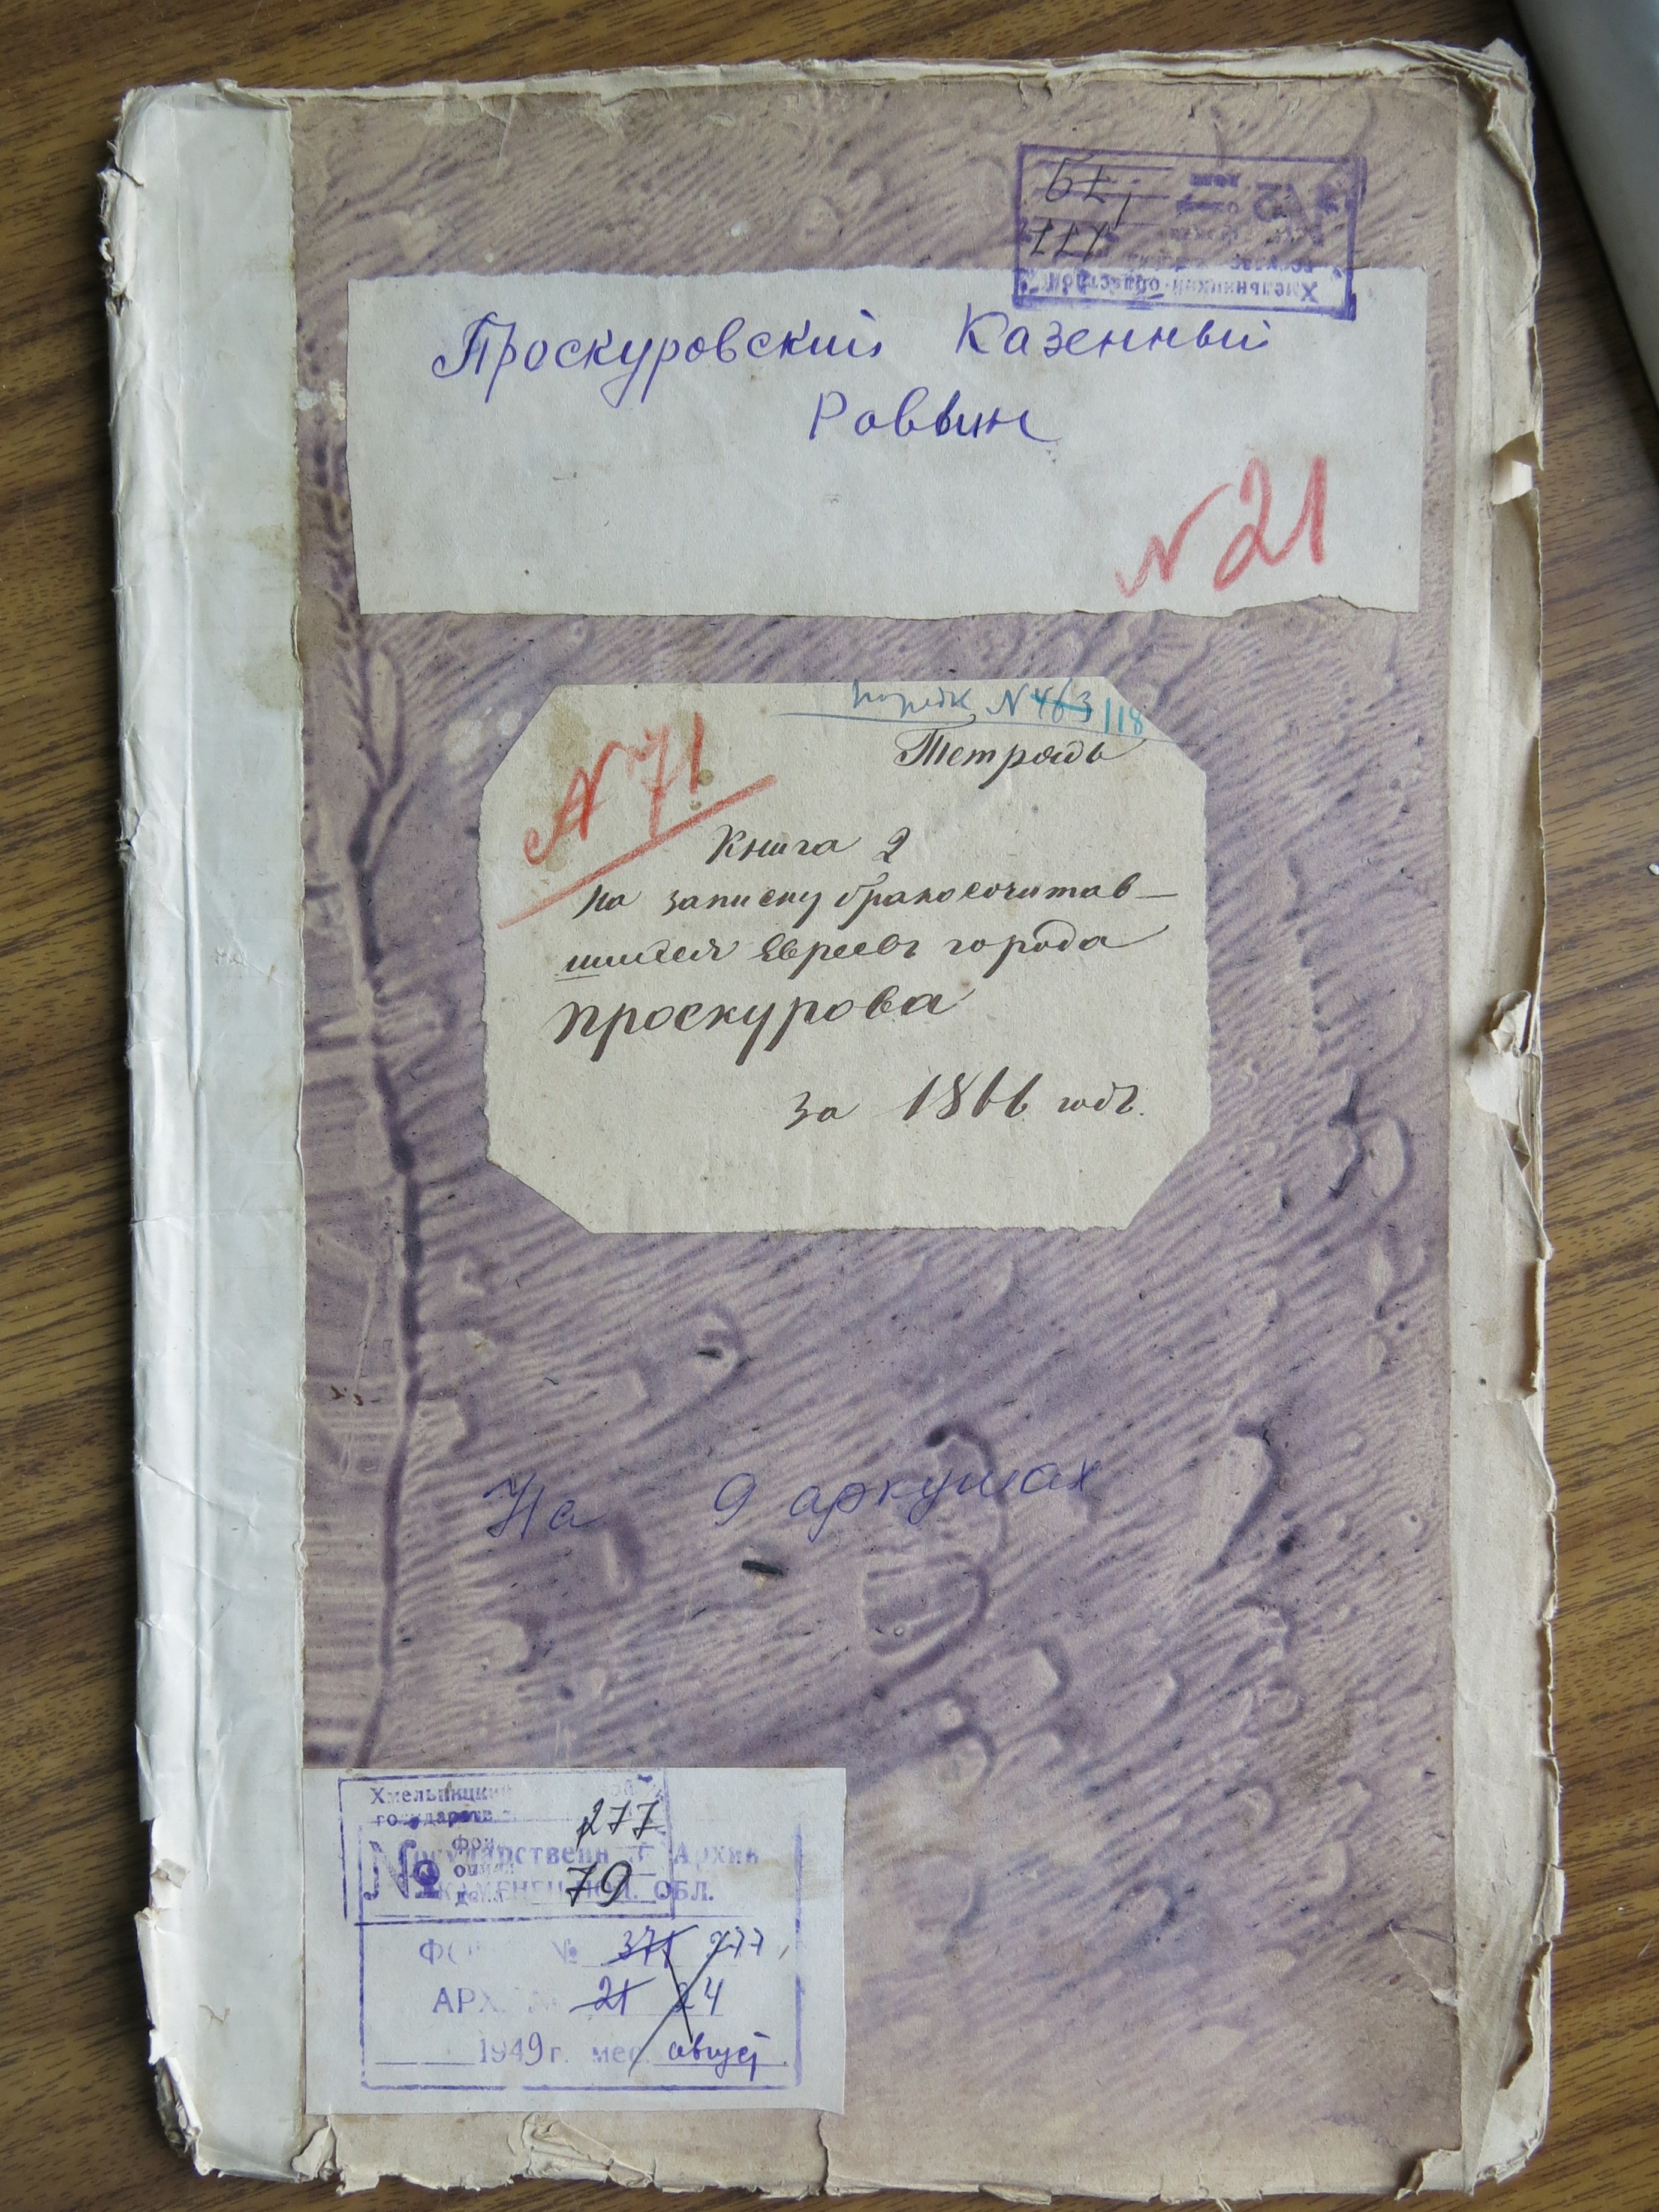 Хмельницкий областной
277
79
Проскуровский Казенный
Раввин
N 21
порядк N 463 118
N 71
Тетрадь
Книга 2
на записку бракосочитав-
шихся Евреевъ города
Проскурова
за 1866 годъ.
На 9 аркушах
Хмельницкий
государств
277
фон
Государственн Архив
опис
№
79
КАМЕНЕЦ-ПОД. ОБЛ.
№ 371 277
АРХ. 21 24
1949 г. мес. август